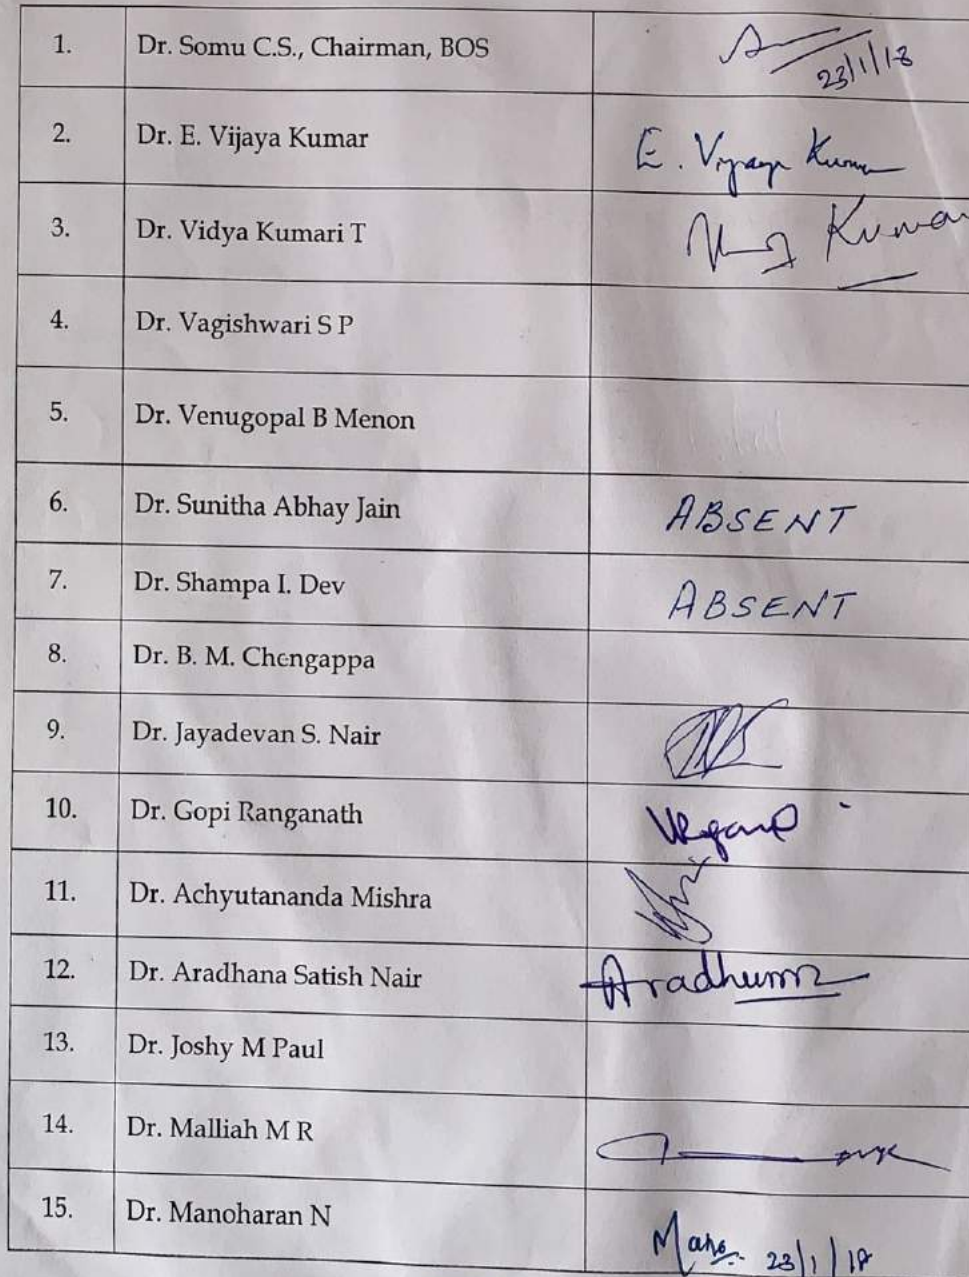 1. Dr. Somu C.S., Chairman, BOS 23/1/18
2. Dr. E. Vijaya Kumar E. Vijaya Kumar
3. Dr. Vidya Kumari T Kumar
4. Dr. Vagishwari S P
5. Dr. Venugopal B Menon
6. Dr. Sunitha Abhay Jain ABSENT
7. Dr. Shampa I. Dev ABSENT
8. Dr. B. M. Chengappa
9. Dr. Jayadevan S. Nair
10. Dr. Gopi Ranganath
11. Dr. Achyutananda Mishra
12. Dr. Aradhana Satish Nair
13. Dr. Joshy M Paul
14. Dr. Malliah M R
15. Dr. Manoharan N 23/1/18